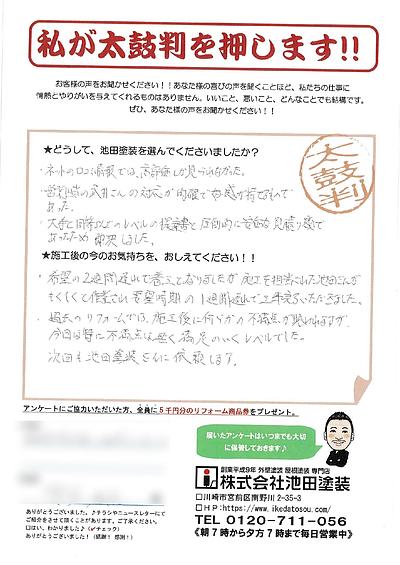 私が太鼓判を押します!!
お客様の声をお聞かせください！！あなた様の喜びの声を聞くことほど、私たちの仕事に
情熱とやりがいを与えてくれるものはありません。いいこと、悪いこと、どんなことでも結構です。
ぜひ、あなた様の声をお聞かせください！！
★どうして、池田塗装を選んでくださいましたか？
太鼓判
・ネットの口コミ情報では、高評価しか見られなかった。
・営業担当の武井さんの対応が的確で好感が持てるもので
あった。
・大手と同等以上のレベルの提案書と圧倒的に安価な見積り額で
あったため即決しました。
★施工後の今のお気持ちを、おしえてください！！
・希望の2週間遅れで着工となりましたが施工を担当された池田さんが
もくもくと作業され希望時期の1週間遅れで工事完了いただきました。
・過去のリフォームでは、施工後に何らかの不満点が
今回は特に不満点は無く満足のいくレベルでした。
次回も池田塗装さんに依頼します。
アンケートにご協力いただいた方、全員に５千円分のリフォーム商品券をプレゼント。
届いたアンケートはいつまでも大切
に保管しておきます♪
創業平成9年 外壁塗装 屋根塗装 専門店
株式会社池田塗装
□川崎市宮前区南野川2-35-3
□HP:https://www.ikedatosou.com/
TEL 0120-711-056
《朝7時から夕方7時まで毎日営業中》
ありがとうございました。♪チラシやニュースレターにて
ご紹介をさせて頂くことがあります。ご了承ください。
□はい、わかりました♪（✓チェック）
ありがとうございました！（感謝！感謝！）